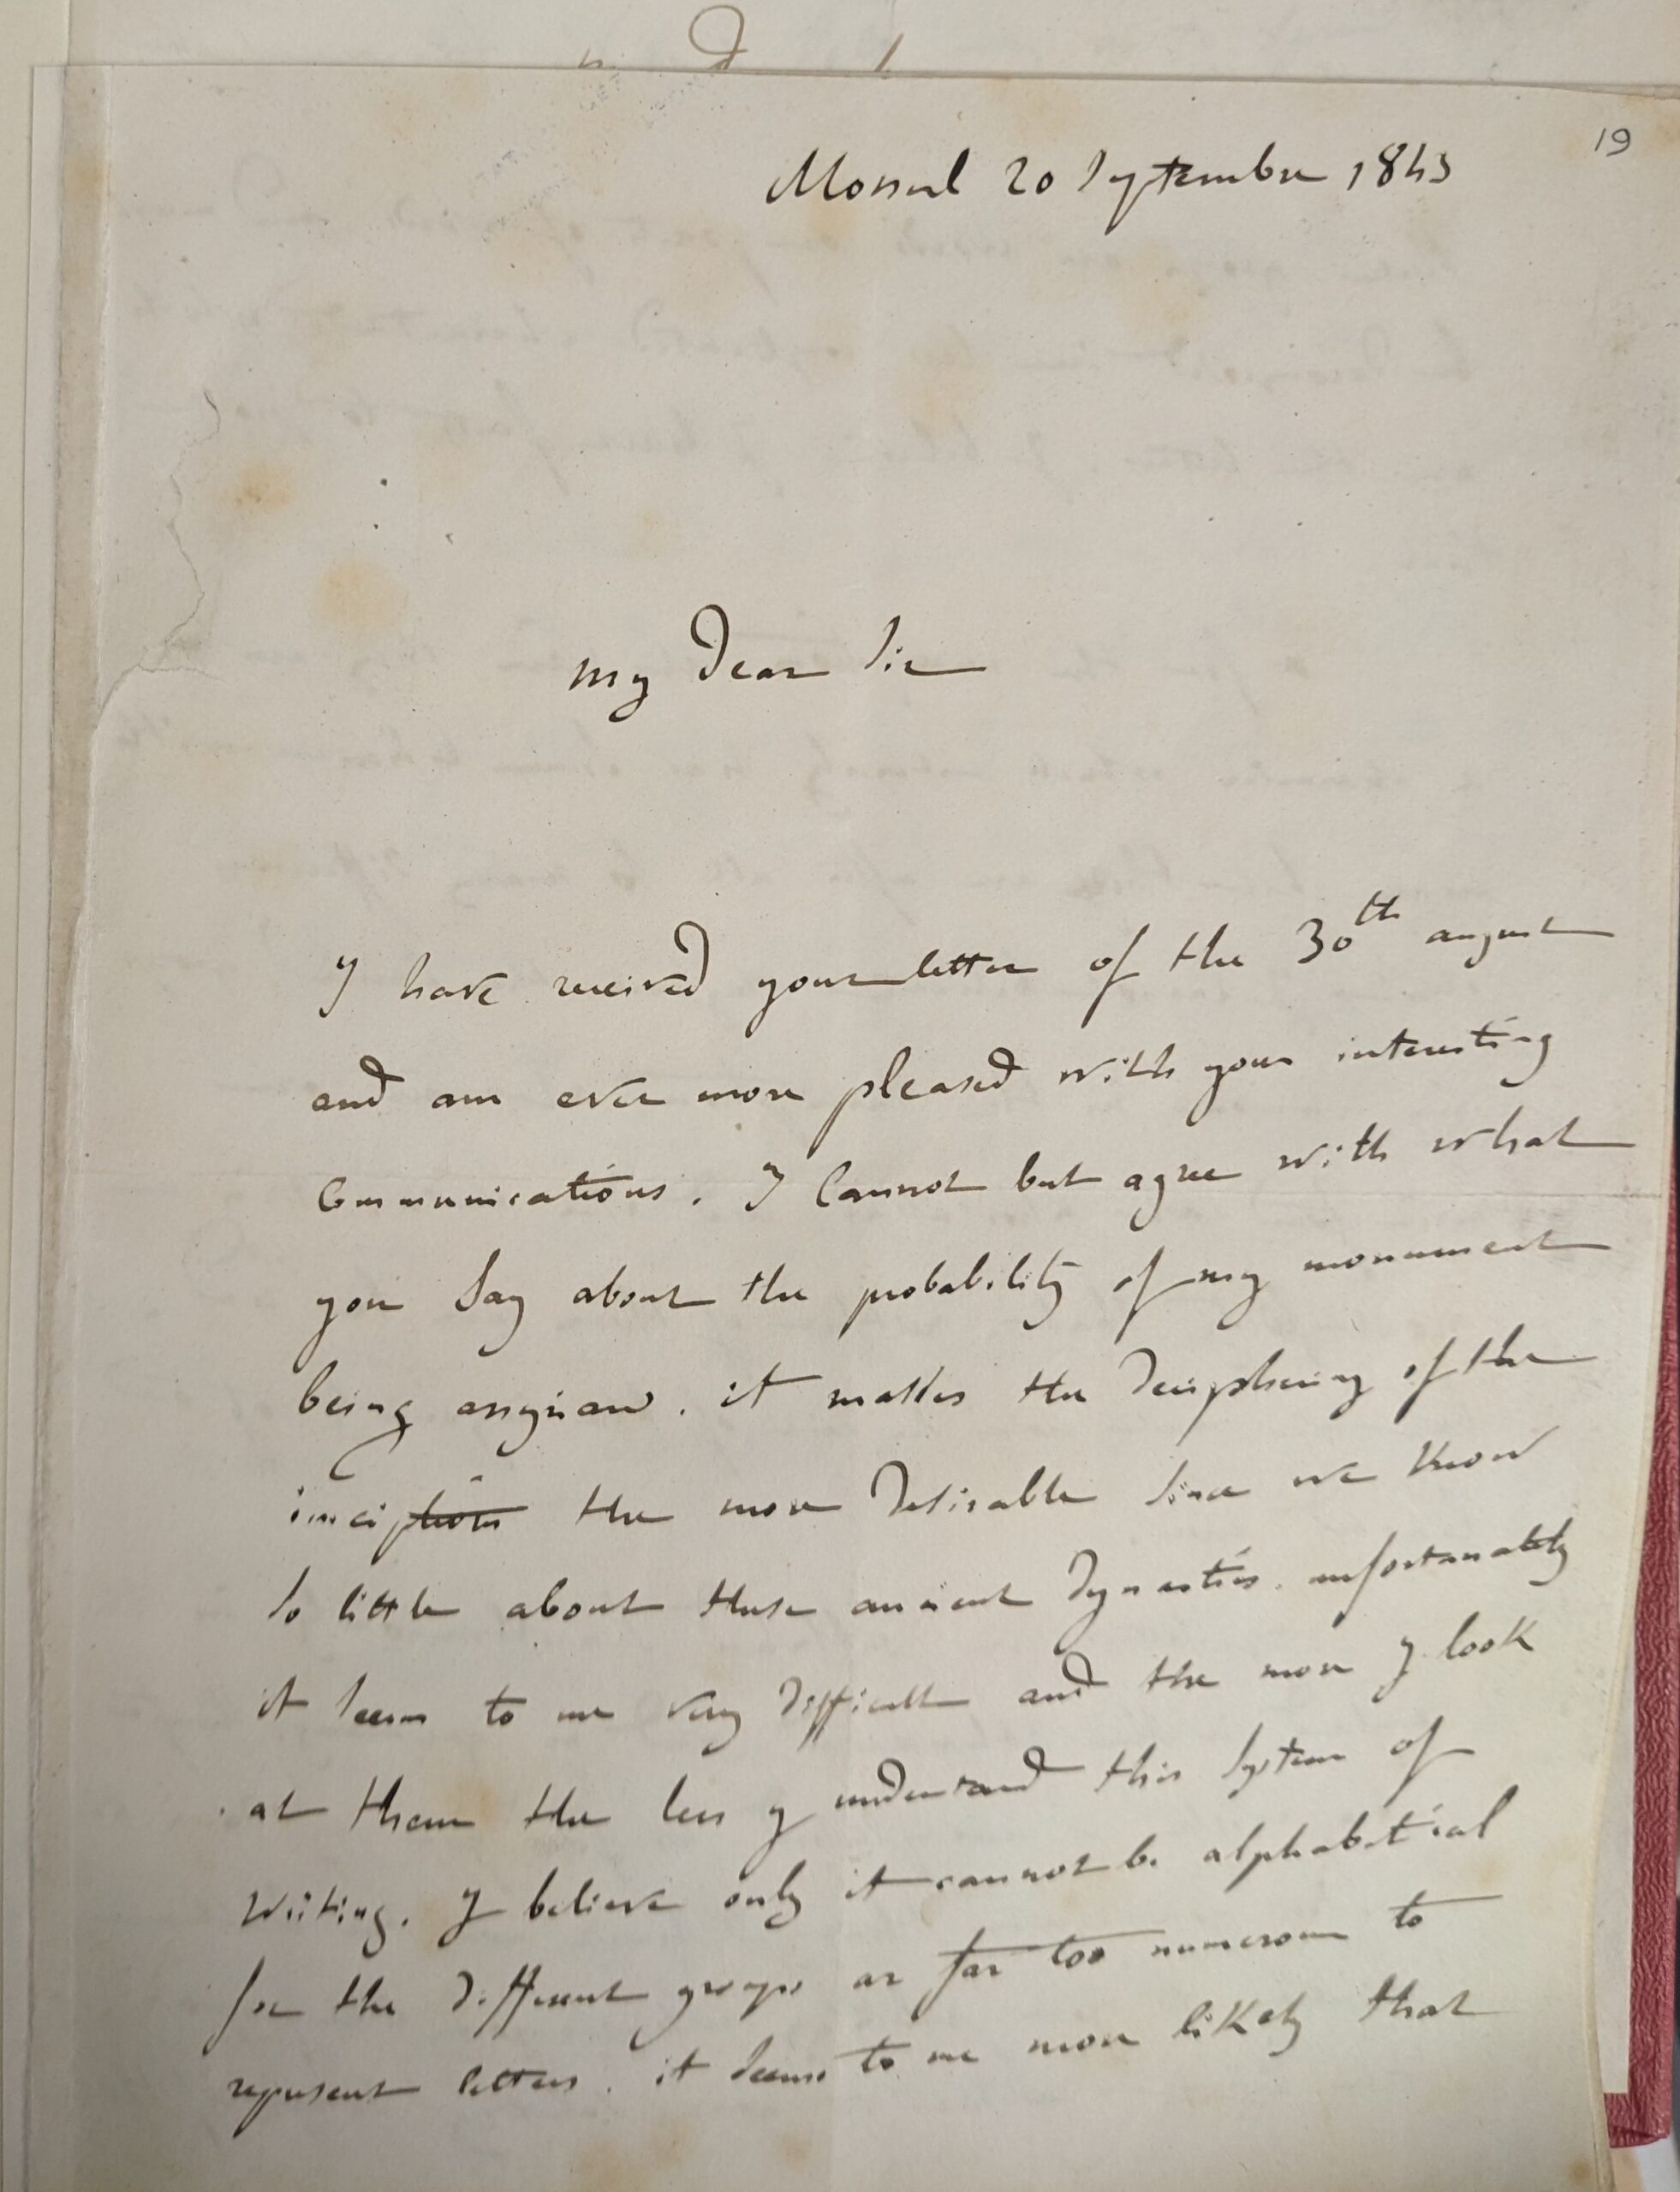 19
Mossul 20 September 1843
my Dear Sir
I have received your letter of the 30th august
and am ever more pleased with your interesting
communications. I cannot but agree with what
you say about the probability of my monument
being assyrian. it makes the deciphering of the
the more desirable since we know
so little about these ancient dynasties. unfortunately
it seems to me very difficult and the more y look
at them the less y understand this system of
writing. y believe only it cannot be alphabetical
for the different groups are far too numerous to
represent letters. it seems to me more likely that